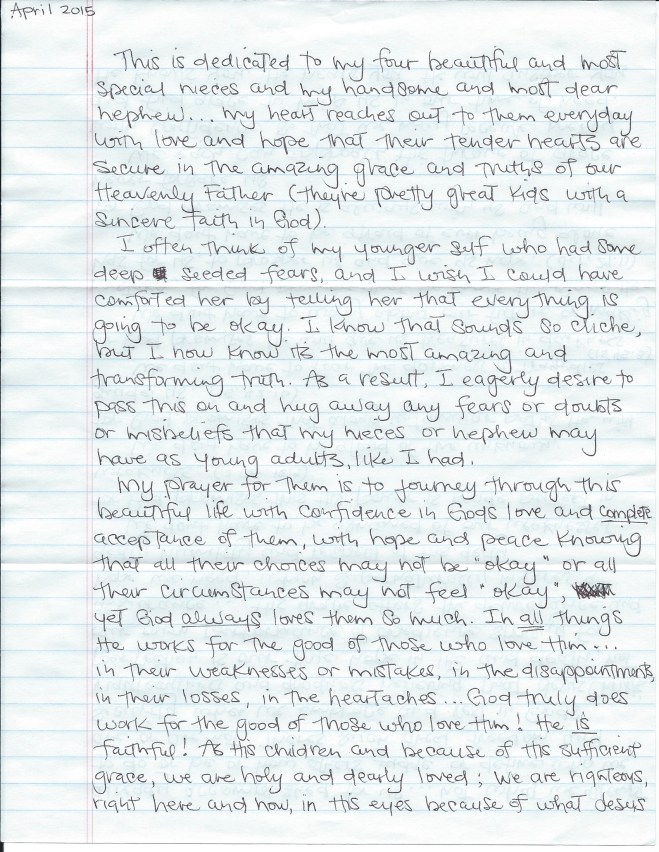 April 2015
This is dedicated to my four beautiful and most
special nieces and my handsome and most dear
nephew... my heart reaches out to them everyday
with love and hope that their tender hearts are
secure in the amazing grace and truths of our
Heavenly Father (they're pretty great kids with a
sincere faith in God).
I often think of my younger self who had some
deep seeded fears, and I wish I could have
comforted her by telling her that everything is
going to be okay. I know that sounds so cliche,
but I now know it's the most amazing and
transforming truth. As a result, I eagerly desire to
pass this on and hug away any fears or doubts
or misbeliefs that my nieces or nephew may
have as young adults, like I had.
My prayer for them is to journey through this
beautiful life with confidence in God's love and complete
acceptance of them, with hope and peace knowing
that all their choices may not be "okay" or all
their circumstances may not feel "okay",
yet God always loves them so much. In all things
He works for the good of those who love Him...
in their weaknesses or mistakes, in the disappointments,
in their losses, in the heartaches... God truly does
work for the good of those who love Him! He is
faithful! As His children and because of His sufficient
grace, we are holy and dearly loved; we are righteous,
right here and now, in His eyes because of what Jesus